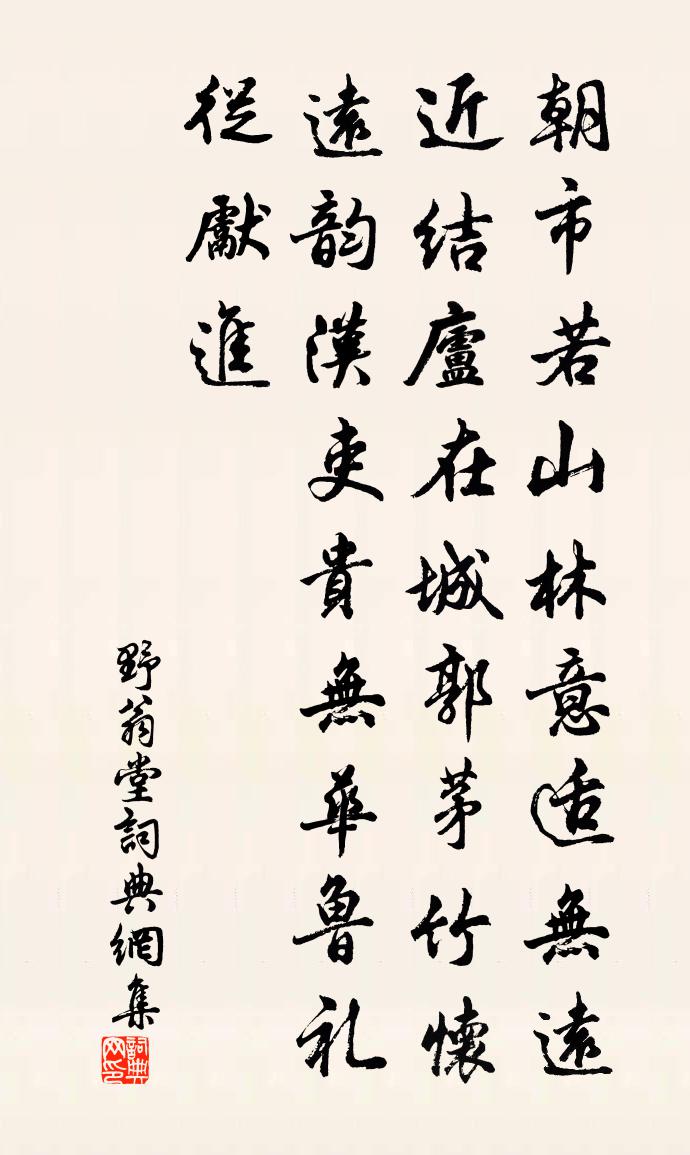 朝市若山林意适無遠
近結廬在城郭茅竹懷
遠韵漢吏貴無華魯礼
從獻進
野翁堂詞典網集
詞典网印